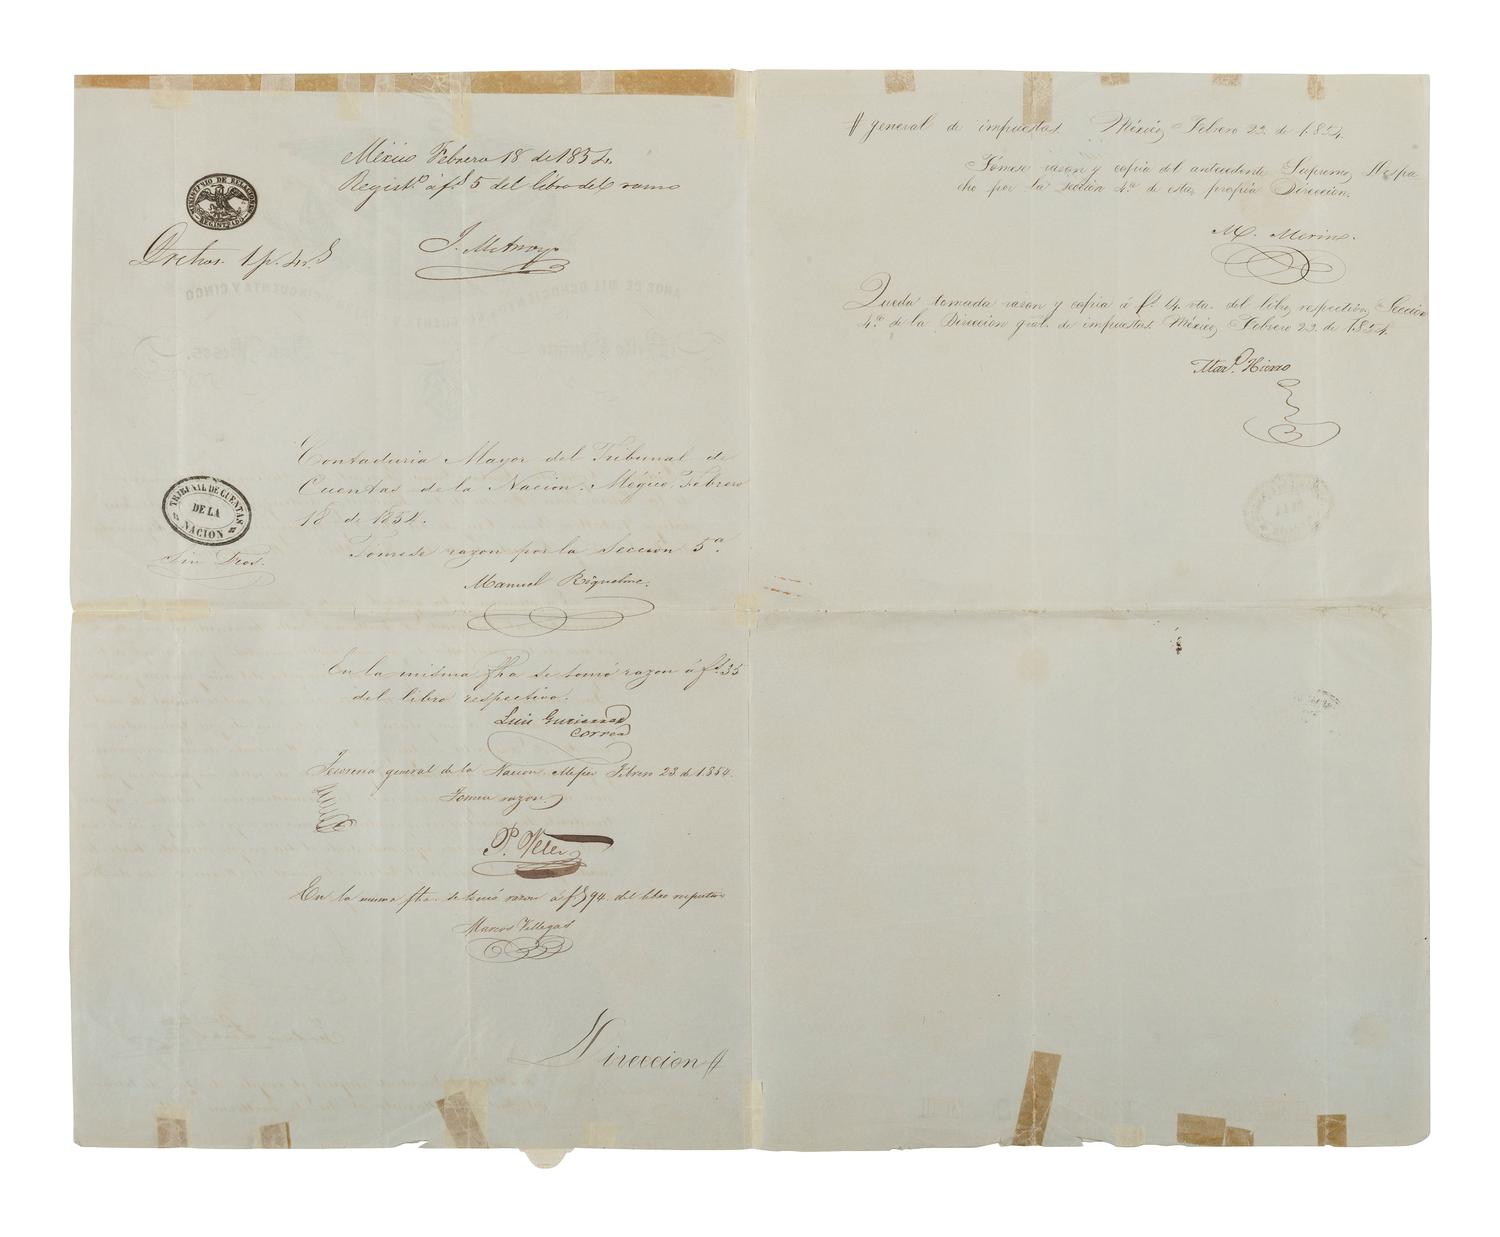 México Febrero 18 de 1854.
Regist.º á f.s 5 del libro del ramo
MINISTERIO DE RELACIONES
REGISTRADO
Drchos. 1 p. 4 r.s
J. M. Arroyo
Contaduria Mayor del Tribunal de
Cuentas de la Nacion. Mégico, Febrero
18 de 1854.
TRIBUNAL DE CUENTAS
DE LA
NACION
Sin Dros.
Tómese razon por la Seccion 5.a
Manuel Riquelme.
En la misma fha se tomó razon á f.s 35
del libro respectivo.
Luis Gutierrez
Correa
Tesoreria general de la Nacion. Mejico Febrero 23 de 1854.
Tomese razon
P. Velez
En la misma fha. se tomó razon á f.s 94. del libro respectivo
Marcos Villegas
Direccion #
# general de impuestos. México, Febrero 23 de 1.854.
Tómese razon y copia del antecedente Supremo Despa
cho por la Sección 4.a de esta propia Direccion.
M. Merino.
Queda tomada razon y copia á f.s 4 vta. del libro respectivo, Seccion
4.a de la Direccion gral. de impuestos México, Febrero 23 de 1.854.
Mar.º Hierro